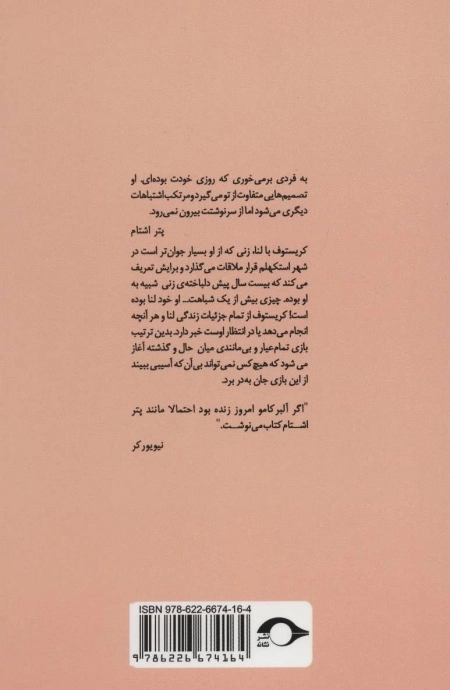 به فردی برمی‌خوری که روزی خودت بوده‌ای. او
تصمیم‌هایی متفاوت از تو می‌گیرد و مرتکب اشتباهات
دیگری می‌شود اما از سرنوشتت بیرون نمی‌رود.
پتر اشتام
کریستوف با لنا، زنی که از او بسیار جوان‌تر است در
شهر استکهلم قرار ملاقات می‌گذارد و برایش تعریف
می‌کند که بیست سال پیش دلباخته‌ی زنی شبیه به
او بوده. چیزی بیش از یک شباهت... او خود لنا بوده
است! کریستوف از تمام جزئیات زندگی لنا و هر آنچه
انجام می‌دهد یا در انتظار اوست خبر دارد. بدین ترتیب
بازی تمام‌عیار و بی‌مانندی میان حال و گذشته آغاز
می شود که هیچ‌کس نمی‌تواند بی‌آن که آسیبی ببیند
از این بازی جان به‌در برد.
"اگر آلبر کامو امروز زنده بود احتمالا مانند پتر
اشتام کتاب می‌نوشت."
نیویورکر
ISBN 978-622-6674-16-4
9 786226 674164